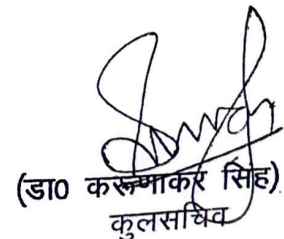 (डा0 करूणाकर सिंह)
कुलसचिव